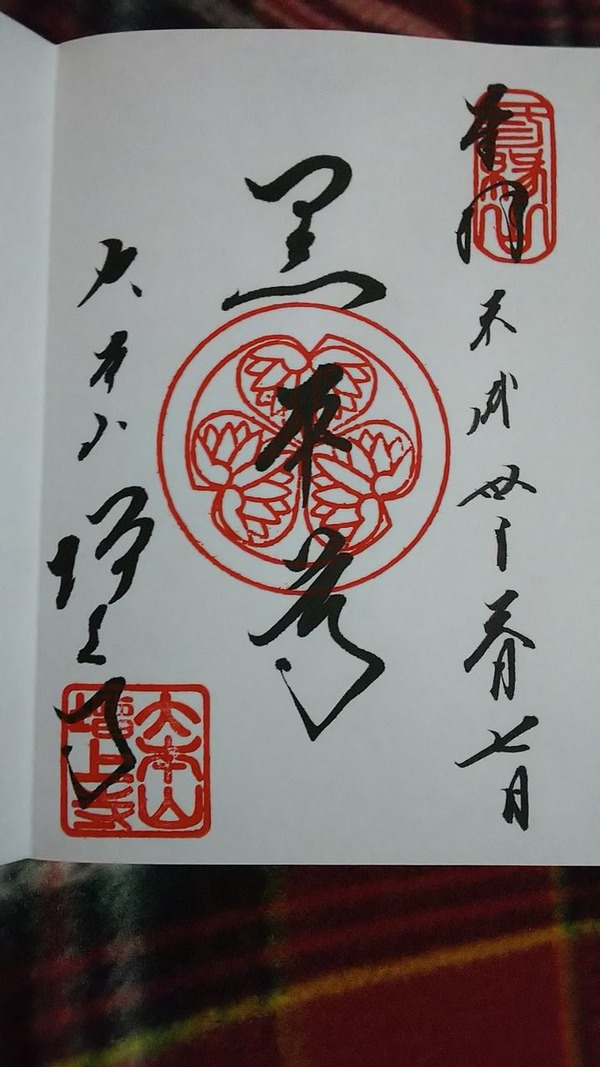 奉拝
三縁山
平成丗
七
黒本尊
大本山増上寺
大本山
増上寺